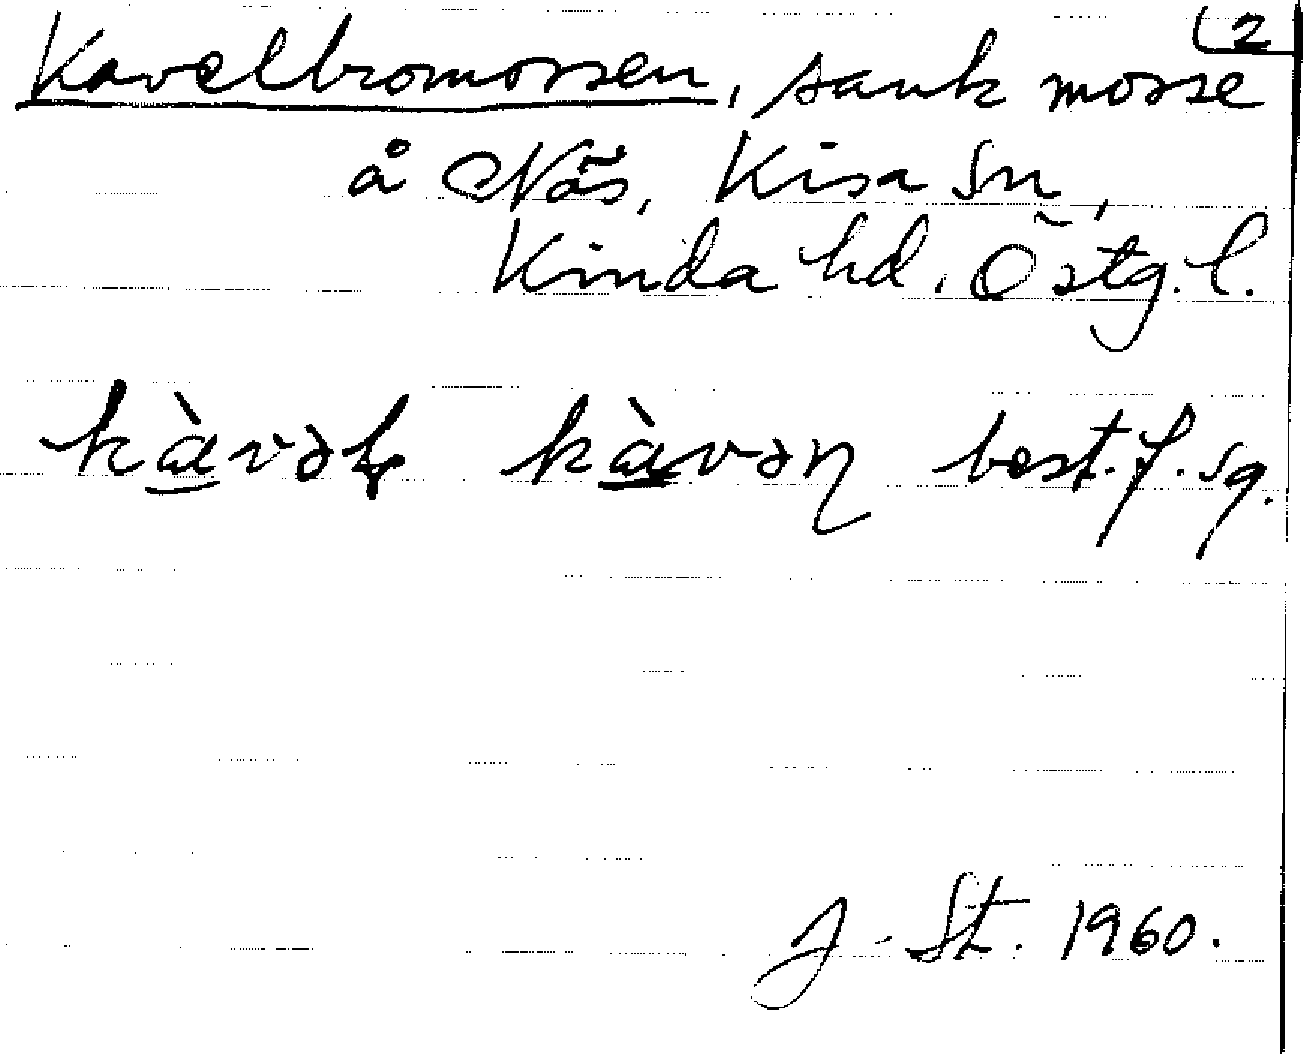 2
Kavelbromossen, sank mosse
å Näs, Kisa sn,
Kinda hd. Östg. l.
kàvəł kàvəɳ best. f. sg.
J. St. 1960.